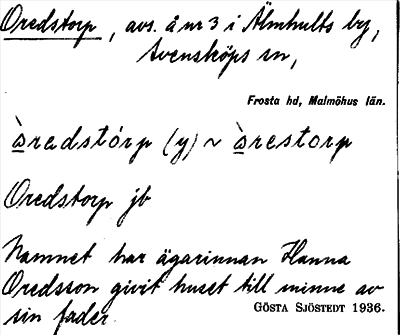 Oredstorp, avs. å nr 3 i Älmhults by,
Svensköps sn,
Frosta hd, Malmöhus län.
òredstórp (y) ~ òrestorp
Oredstorp jb
Namnet har ägarinnan Hanna
Oredsson givit huset till minne av
sin fader.
GÖSTA SJÖSTEDT 1936.